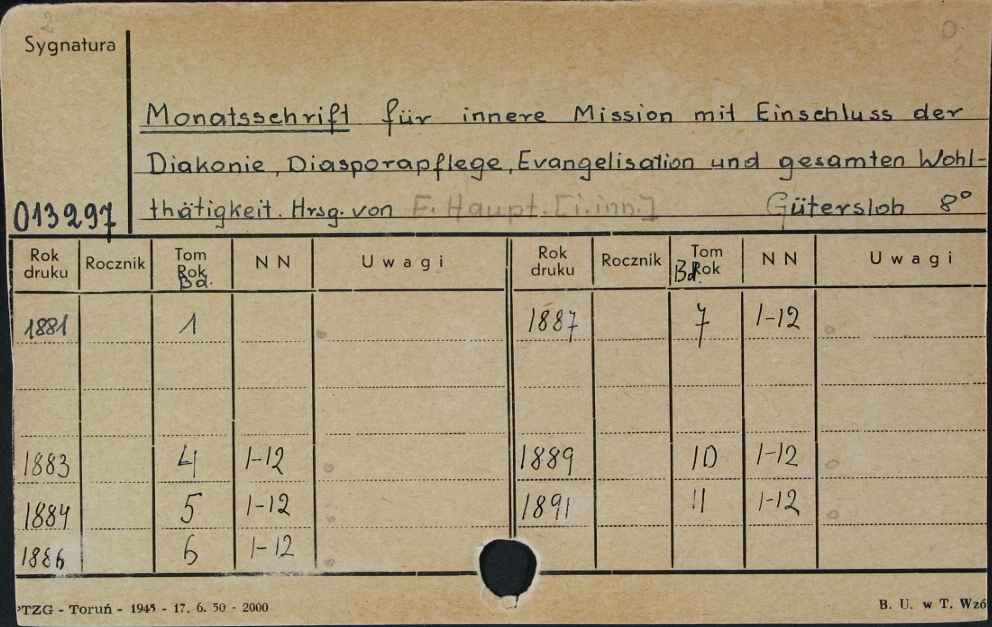 Sygnatura
Monatsschrift für innere Mission mit Einschluss der
Diakonie, Diasporapflege, Evangelisation und gesamten Wohl-
013297 thätigkeit. Hrsg. von F. Haupt. [i. inn.] Gütersloh 8°
Rok druku Rocznik Tom Rok Bd. NN Uwagi Rok druku Rocznik Tom Bd. Rok NN Uwagi
1881 1 1887 7 1-12
1883 4 1-12 1889 10 1-12
1884 5 1-12 1891 11 1-12
1886 6 1-12
PTZG - Toruń - 1945 - 17. 6. 50 - 2000 B. U. w T. Wzó